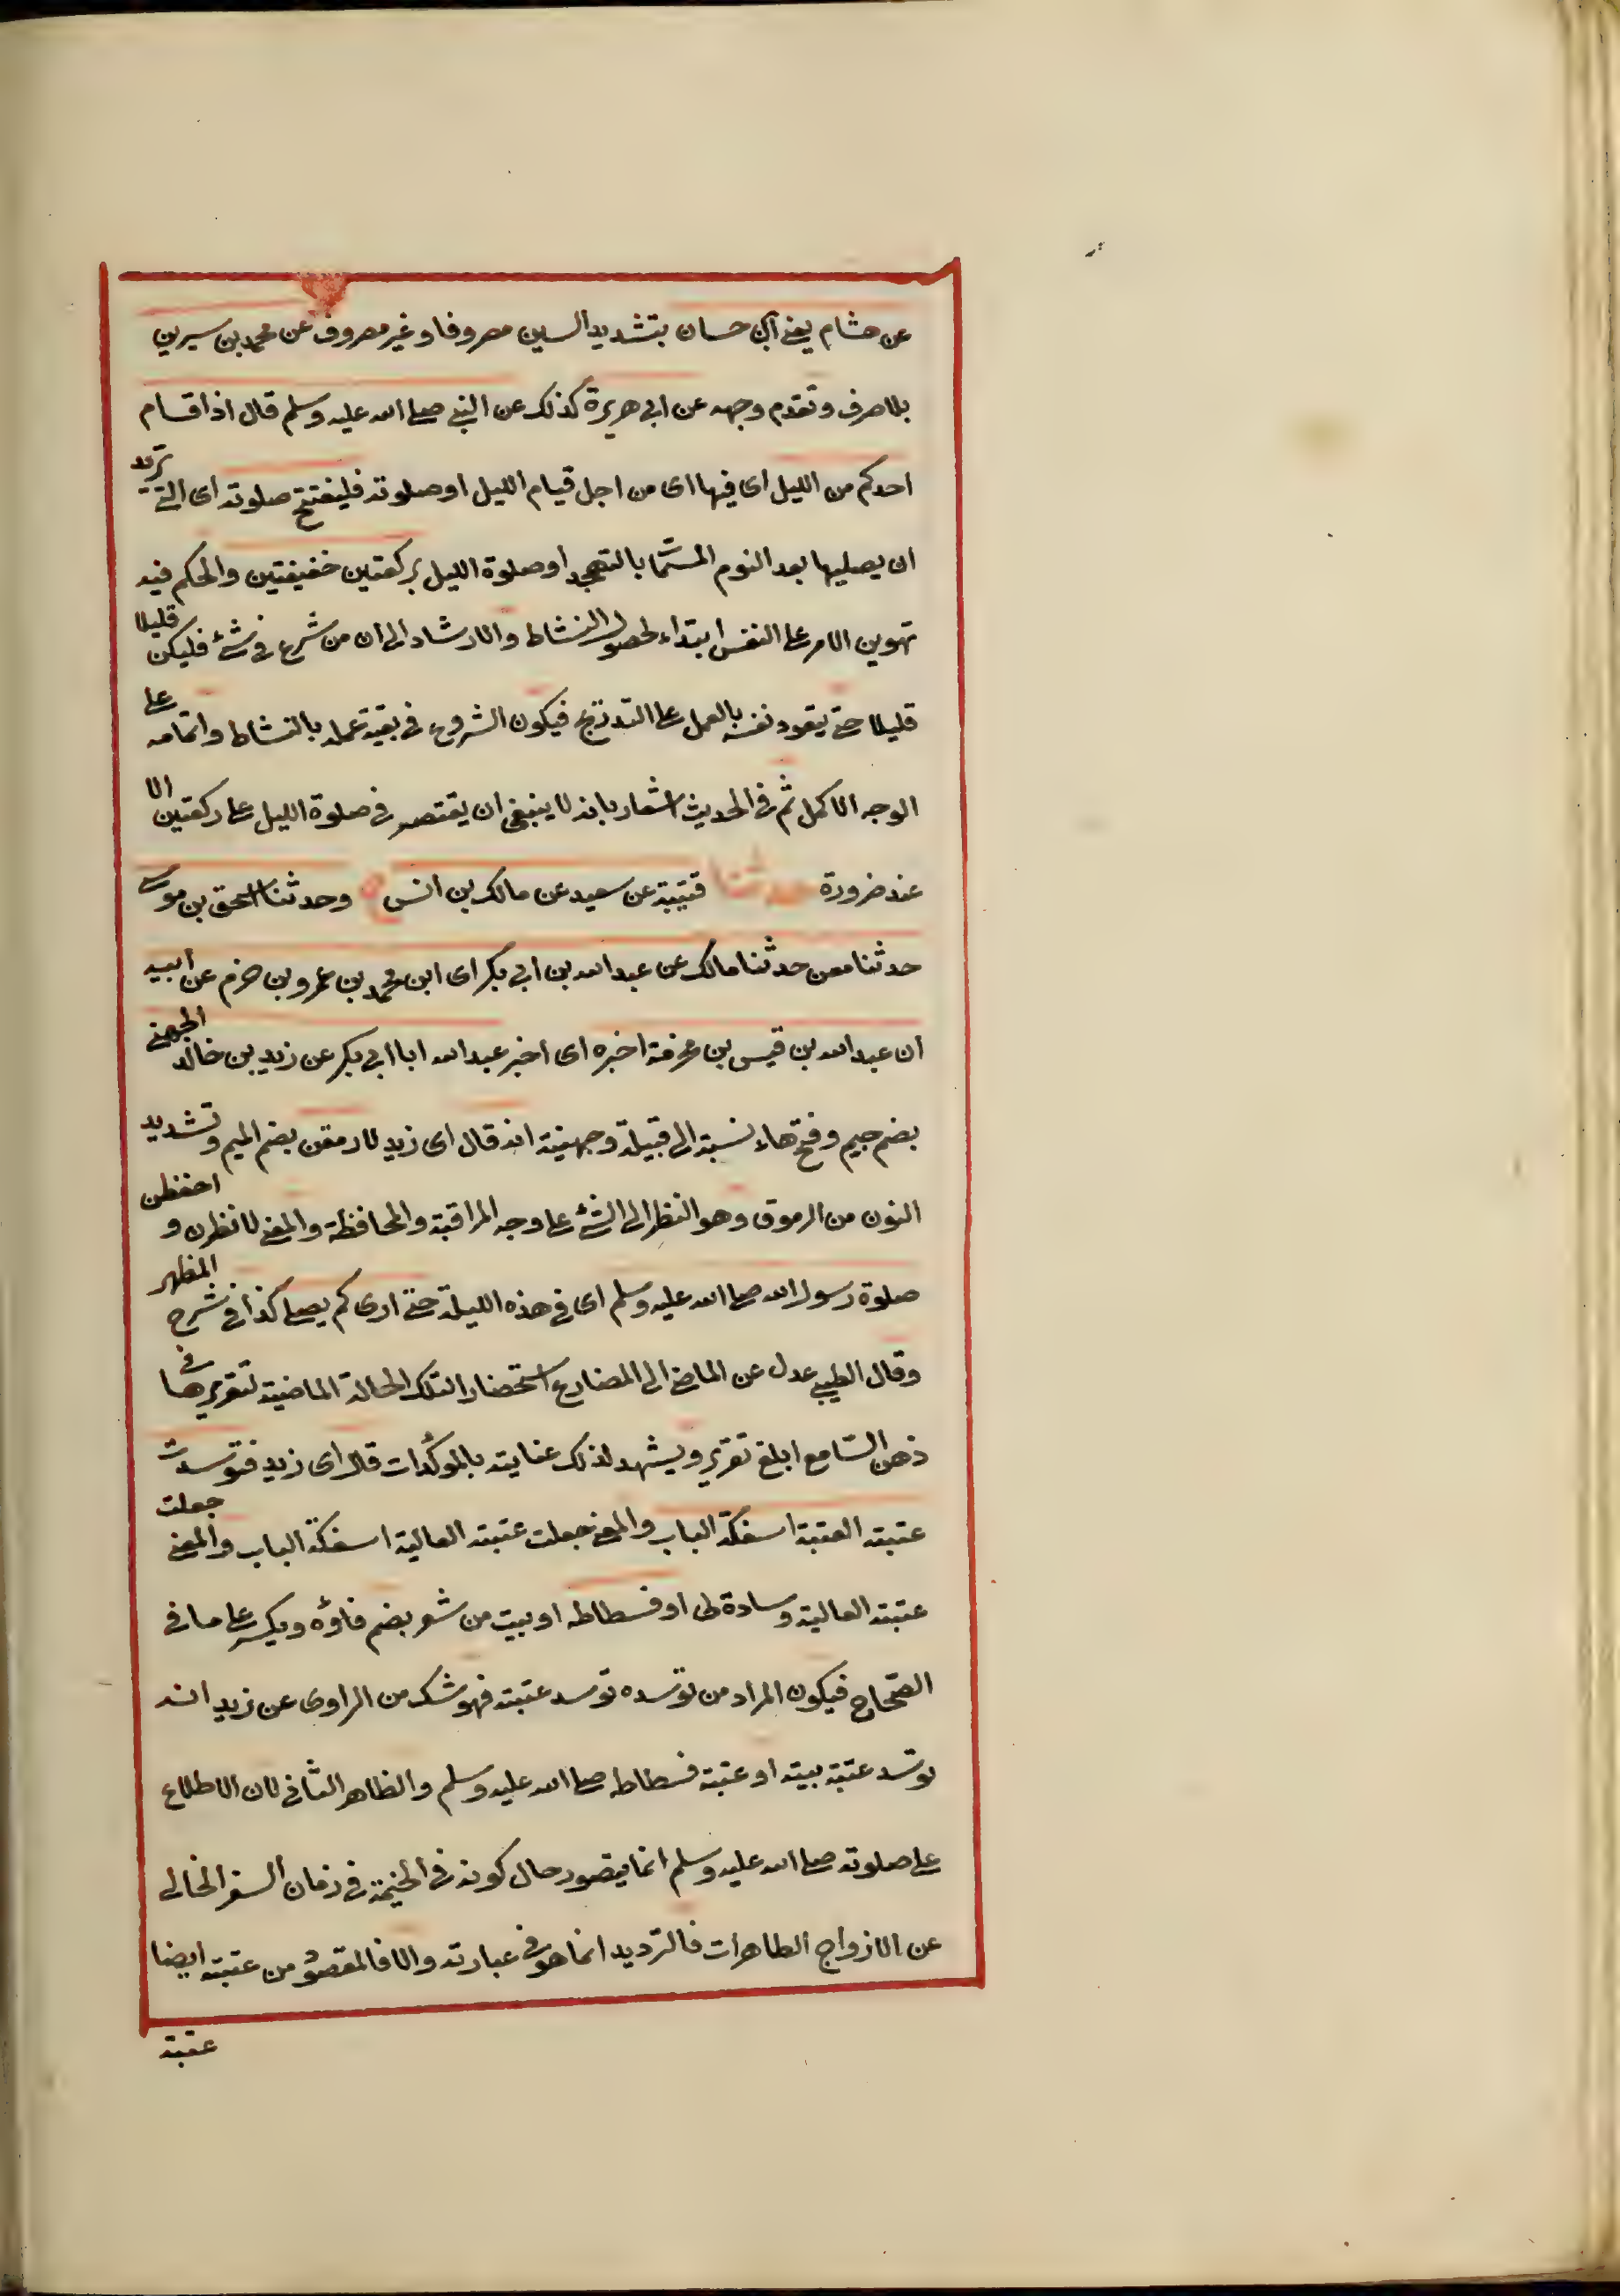 عن هشام يعني ابن حسان بتشديد السين مصروفا وغير مصروف عن محمد بن سيرين
بلا صرف وتقدم وجهه عن ابي هريرة كذلك عن النبي صلى الله عليه وسلم قال اذا قام
احدكم من الليل اى فيها اى من اجل قيام الليل او صلوته فليفتتح صلوته اى التي تريد
ان يصليها بعد النوم المسمّا بالتهجد او صلوة الليل بركعتين خفيفتين والحكم فيه
تهوين الامر على النفس ابتداء لحصول النشاط والارشاد الى ان من شرع في شئ فليكن قليلا
قليلا حتى يتعود نفسه بالعمل على التدريج فيكون الشروع في بقية عمله بالنشاط واتمامه على
الوجه الاكمل ثم في الحديث اشعار بانه لا ينبغي ان يقتصر في صلوة الليل على ركعتين الا
عند ضرورة حدثنا قتيبة عن سعيد عن مالك بن انس ح وحدثنا اسحق بن موسى
حدثنا معن حدثنا مالك عن عبد الله بن ابي بكر اى ابن محمد بن عمرو بن حزم عن ابيه
ان عبد الله بن قيس بن مخرمة اخبره اى اخبر عبد الله ابا ابي بكر عن زيد بن خالد الجهني
بضم جيم وفتح هاء نسبة الى قبيلة وجهينة انه قال اى زيد لارمقن بضم الميم وتشديد
النون من الرموق وهو النظر الى الشئ على وجه المراقبة والمحافظة والمعنى لانظرن و احفظن
صلوة رسول الله صلى الله عليه وسلم اى في هذه الليلة حتى ارى كم يصلي كذا في شرح المظهر
وقال الطيبي عدل عن الماضي الى المضارع استحضارا لتلك الحالة الماضية لتقريرها في
ذهن السّامع ابلغ تقرير ويشهد لذلك عنايته بالمؤكدات قال اى زيد فتوسدت
عتبته العتبة اسكفة الباب والمعنى جعلت عتبته العالية اسكفة الباب والمعنى جعلت
عتبته العالية وسادة لى او فسطاطه او بيت من شعر بضم فاؤه ويكسر على ما في
الصّحاح فيكون المراد من توسده توسد عتبته فهو شك من الراوى عن زيد انه
توسد عتبة بيته او عتبة فسطاطه صلى الله عليه وسلم والظاهر الثاني لان الاطلاع
على صلوته صلى الله عليه وسلم انما يتصور حال كونه في الخيمة في زمان السفر الخالى
عن الازواج الطاهرات فالترديد انما هو في عبارته والا فالمقصود من عتبته ايضا
عتبة